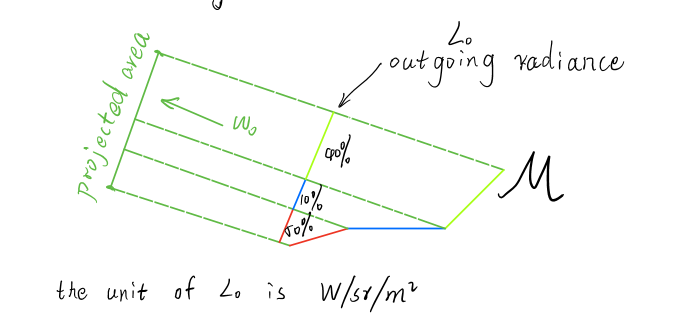 Lo
outgoing radiance
projected area
Wo
40%
M
10%
50%
the unit of Lo is W/sr/m²